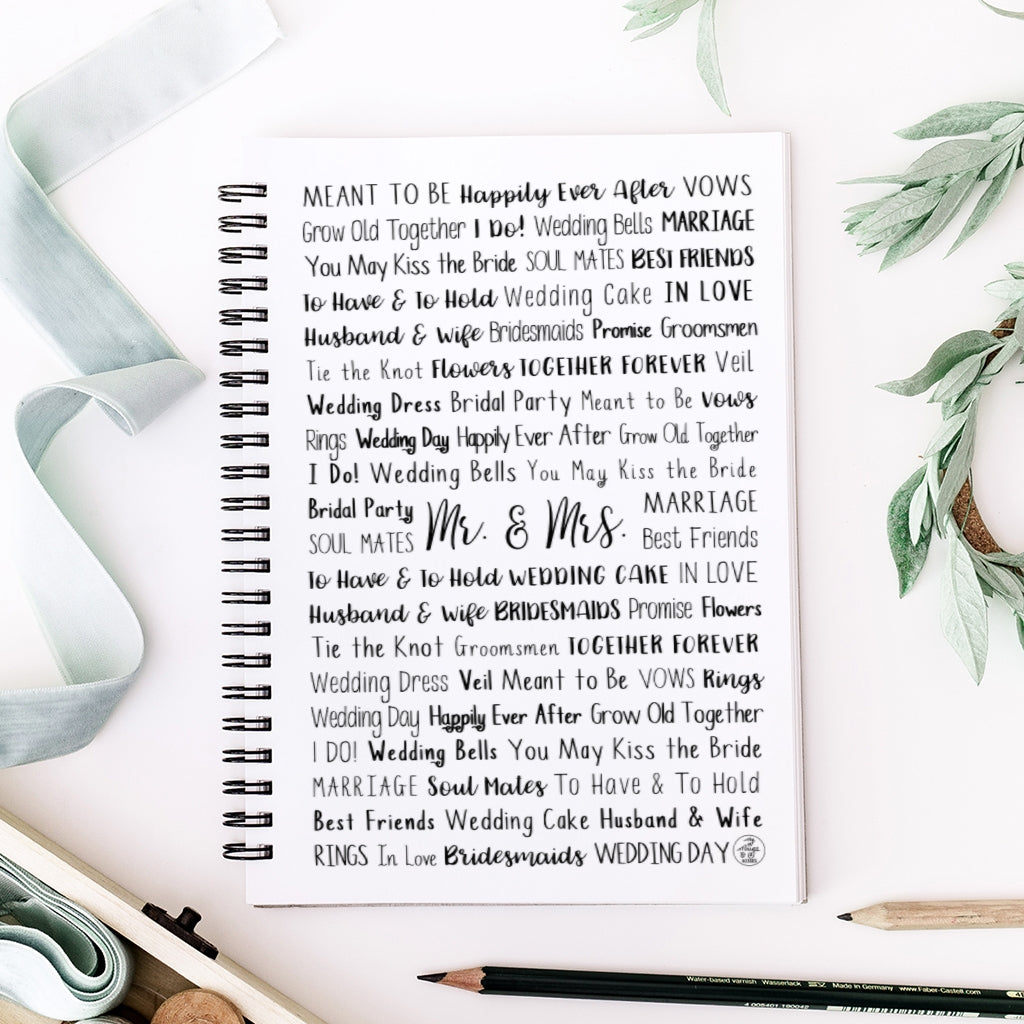 MEANT TO BE Happily Ever After VOWS
Grow Old Together I Do! Wedding Bells MARRIAGE
You May Kiss the Bride SOUL MATES BEST FRIENDS
To Have & To Hold Wedding Cake IN LOVE
Husband & Wife Bridesmaids Promise Groomsmen
Tie the Knot Flowers TOGETHER FOREVER Veil
Wedding Dress Bridal Party Meant to Be Vows
Rings Wedding Day Happily Ever After Grow Old Together
I Do! Wedding Bells You May Kiss the Bride
Bridal Party
SOUL MATES
Mr. & Mrs.
MARRIAGE
Best Friends
To Have & To Hold WEDDING CAKE IN LOVE
Husband & Wife BRIDESMAIDS Promise Flowers
Tie the Knot Groomsmen TOGETHER FOREVER
Wedding Dress Veil Meant to Be VOWS Rings
Wedding Day Happily Ever After Grow Old Together
I DO! Wedding Bells You May Kiss the Bride
MARRIAGE Soul Mates To Have & To Hold
Best Friends Wedding Cake Husband & Wife
RINGS In Love Bridesmaids WEDDING DAY
Water-based varnish Wasserlack Made in Germany www.Faber-Castell.com
4 005401 190042